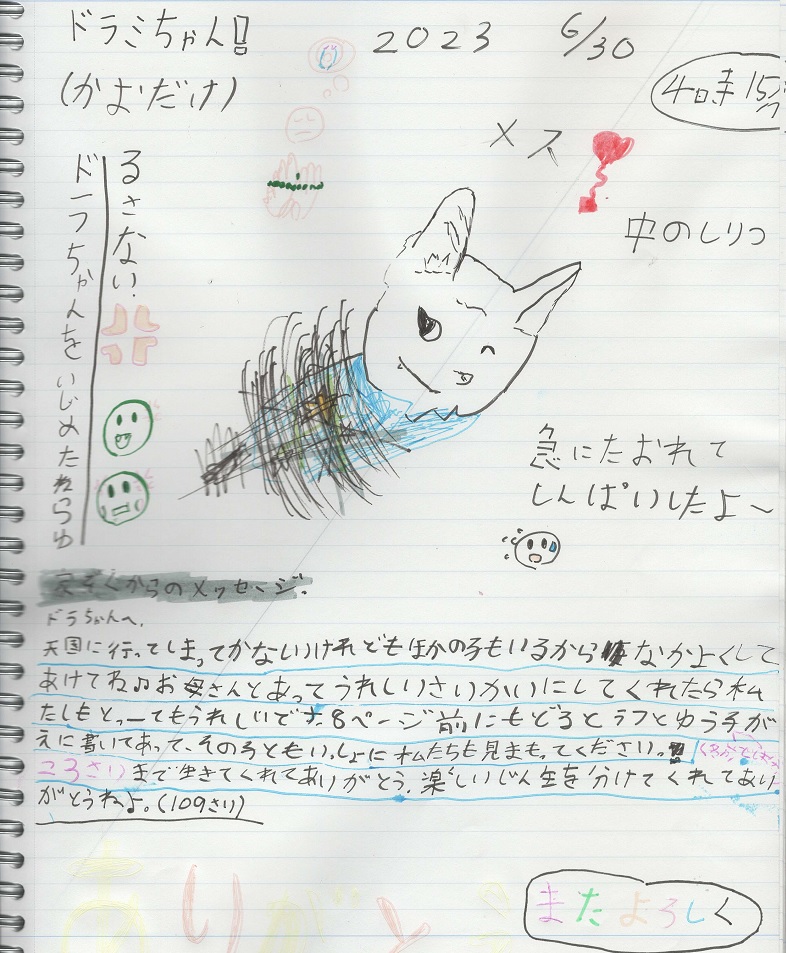 ドラミちゃん!!
2023 6/30
(かおだけ)
4時15分
メス
中のしりつ
ドラちゃんをいじめたれらゆ
るさない.
急にたおれて
しんぱいしたよ~
家ぞくからのメッセージ.
ドラちゃんへ.
天国に行ってしまってかないいけれどもほかの子もいるからなかよくして
あけてね♪お母さんとあってうれしいさいかいにしてくれたら私
たしもとってもうれしいです.8ページ前にもどるとラフとゆう子が
えに書いてあって、その子ともいっしょに私たちも見まもってください。
ころさい まで生きてくれてありがとう.楽しいじん生を分けてくれてあり
がとうねよ。(109さい)
ありがとう
またよろしく